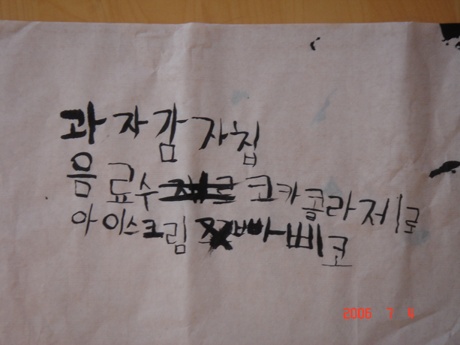 과자감자칩
음료수 코카콜라제로
아이스크림 빠삐코
2005 7 8